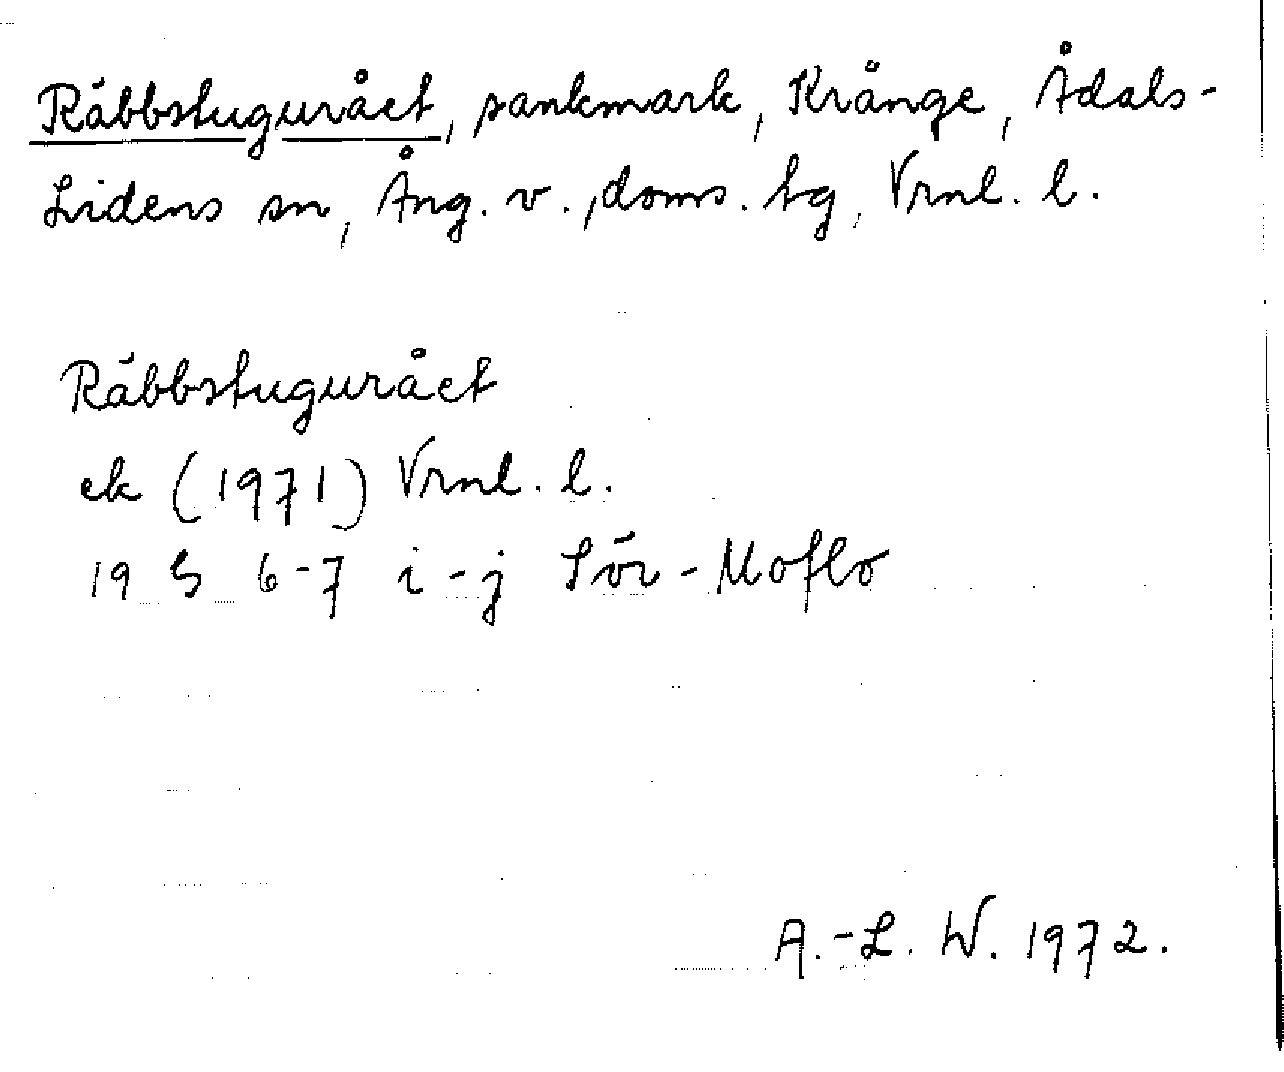 Räbbstugurået, sankmark, Krånge, Ådals-
Lidens sn, Ång. v., doms. tg, Vrnl. l.
Räbbstugurået
ek (1971) Vrnl. l.
19 G 6-7 i-j Sör-Moflo
A.-L. W. 1972.